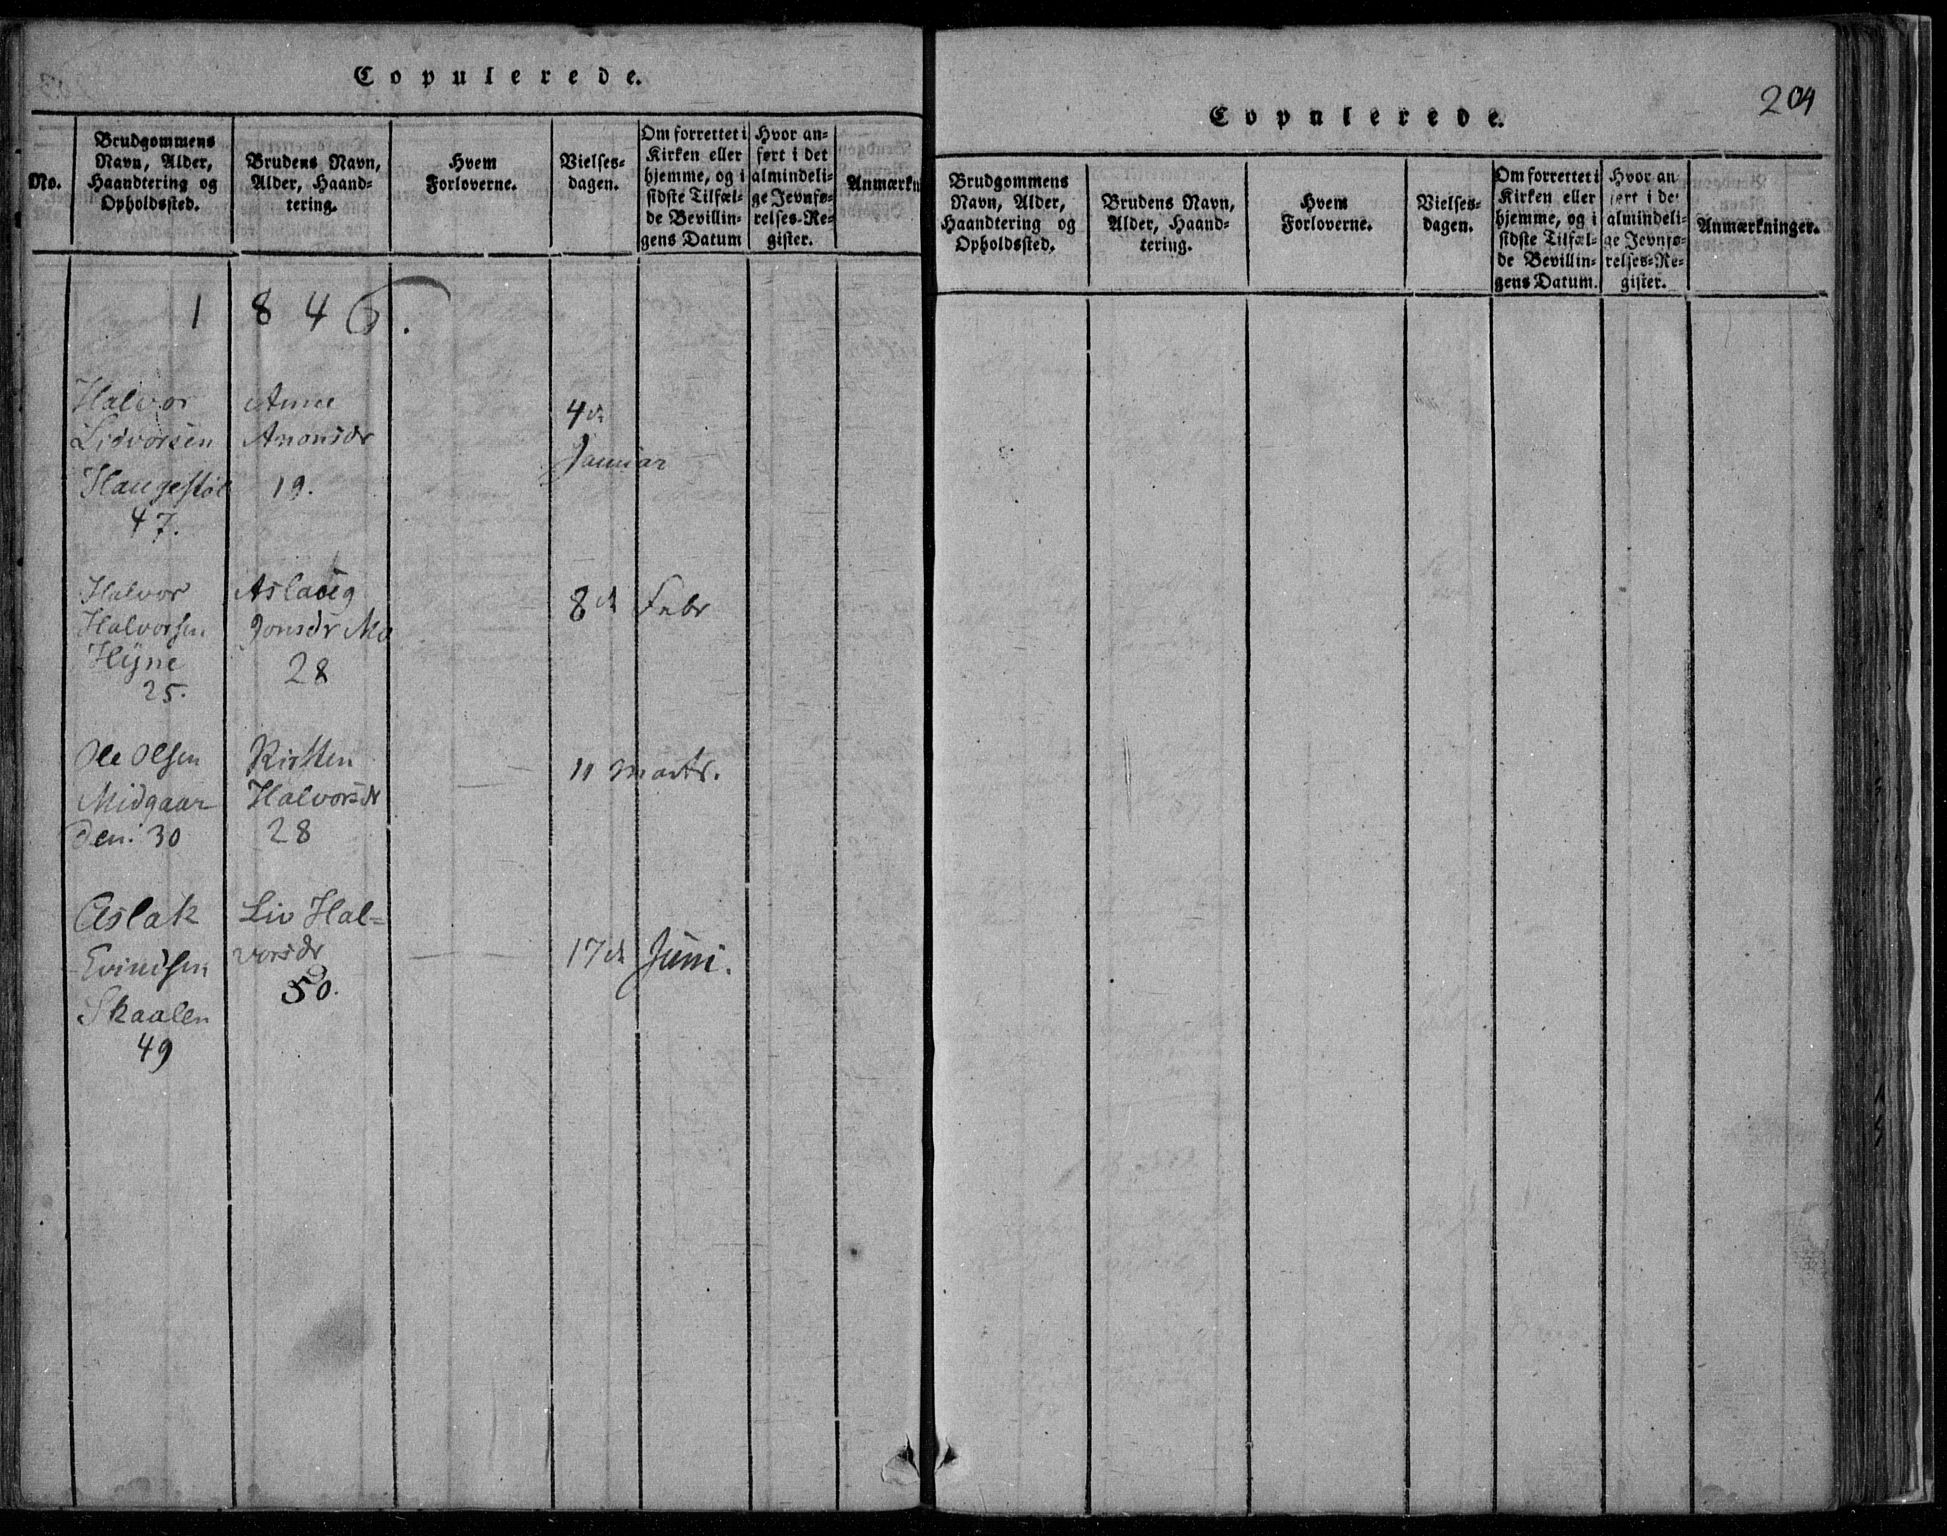 Copulerede.
No.
Brudgommens
Navn, Alder,
Haandtering og
Opholdssted.
Brudens Navn,
Alder, Haand-
tering.
Hvem
Forloverne.
Vielses-
dagen.
Om forrettet i
Kirken eller
hjemme, og i
sidste Tilfæl-
de Bevillin-
gens Datum
Hvor an-
ført i det
almindeli-
ge Jevnfø-
relses-Re-
gister.
Anmærkn
1846.
Halvor
Lidvorsen
Haugestøl
47.
Anne
Anonsdr
19.
4de
Januar
Halvor
Halvorsen
Hyne
25.
Aslaug
Jonsdr Mo
28
8de Febr
Ole Olsen
Midgaar
den. 30
Kirsten
Halvorsdr
28
11 Marts.
Aslak
Evindsen
Skaalen
49
Liv Hal=
vorsdr
50.
17de Juni.
204
Copulerede.
Brudgommens
Navn, Alder,
Haandtering og
Opholdssted.
Brudens Navn,
Alder, Haand-
tering.
Hvem
Forloverne.
Vielses-
dagen.
Om forrettet i
Kirken eller
hjemme, og i
sidste Tilfæl-
de Bevillin-
gens Datum.
Hvor an
ført i det
almindeli-
ge Jevnfø-
relses-Re-
gister.
Anmærkninger.